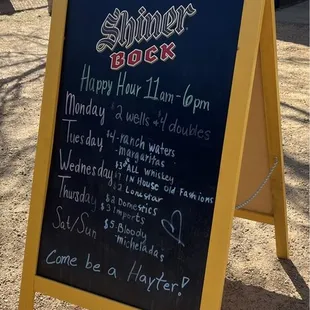 Shiner
BOCK
Happy Hour 11am-6pm
Monday $2 wells & $4 doubles
Tuesday $4-ranch waters
-margaritas
Wednesday $3 off ALL whiskey
$7 IN House Old Fashions
Thursday $2 Lonestar
$2 Domestics
$3 imports
Sat/Sun $5 Bloody
Michelada's
Come be a Hayter!